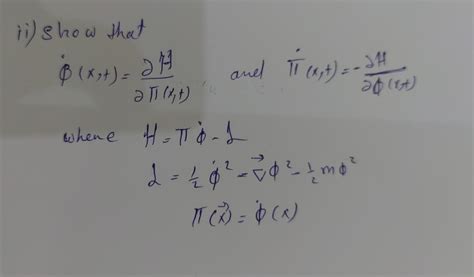 ii) Show that
ϕ̇(x,t) = ∂H/∂Π(x,t), and Π̇(x,t) = -∂H/∂ϕ(x,t)
where H = Πϕ̇ - L
L = 1/2 ϕ̇² = ∇⃗ϕ² - 1/2 mϕ²
Π(x⃗) = ϕ̇(x)